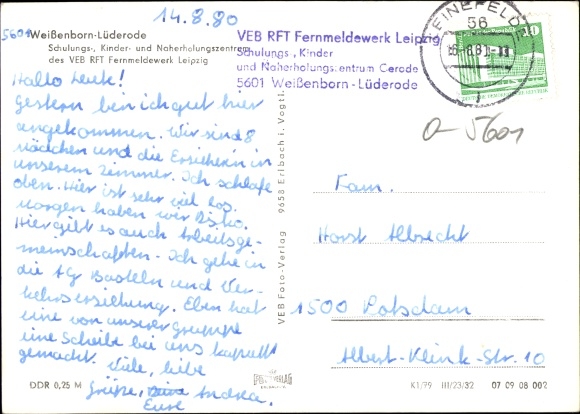 14.8.80
5601 Weißenborn-Lüderode
Schulungs-, Kinder- und Naherholungszentrum
des VEB RFT Fernmeldewerk Leipzig
Hallo Leute!
Gestern bin ich gut hier
angekommen. Wir sind 8
Mädchen und die Erzieherin in
unserem Zimmer. Ich schlafe
oben. Hier ist sehr viel los.
Morgen haben wir Disko.
Hier gibt es auch Arbeitsge-
meinschaften. Ich gehe in
die AG Basteln und Ver-
kehrserziehung. Eben hat
eine von unserer Gruppe
eine Scheibe bei uns kaputt
gemacht. Viele, liebe
Grüße, Andrea.
Eure
DDR 0,25 M
VEB Foto-Verlag 9658 Erlbach i. Vogtl.
VEB RFT Fernmeldewerk Leipzig
Schulungs-, Kinder
und Naherholungszentrum Gerode
5601 Weißenborn-Lüderode
LEINEFELDE
56
o-5601
Fam.
Horst Albrecht
1500 Potsdam
Albert-Klink-Str. 10
K1/79 III/23/32 07 09 08 002